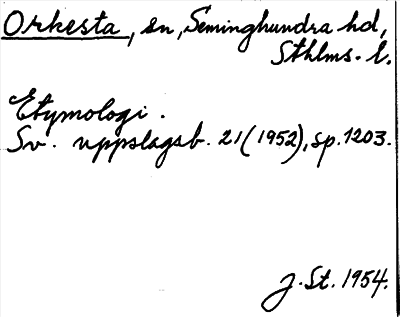 Orkesta, sn, Seminghundra hd,
Sthlms. l.
Etymologi.
Sv. uppslagsb. 21 (1952), sp. 1203.
J. St. 1954.